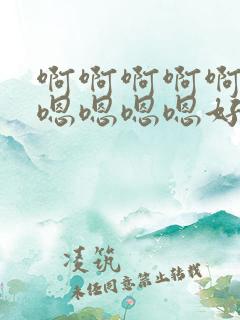 啊啊啊啊啊
嗯嗯嗯嗯好
凌筑
未经同意禁止转载